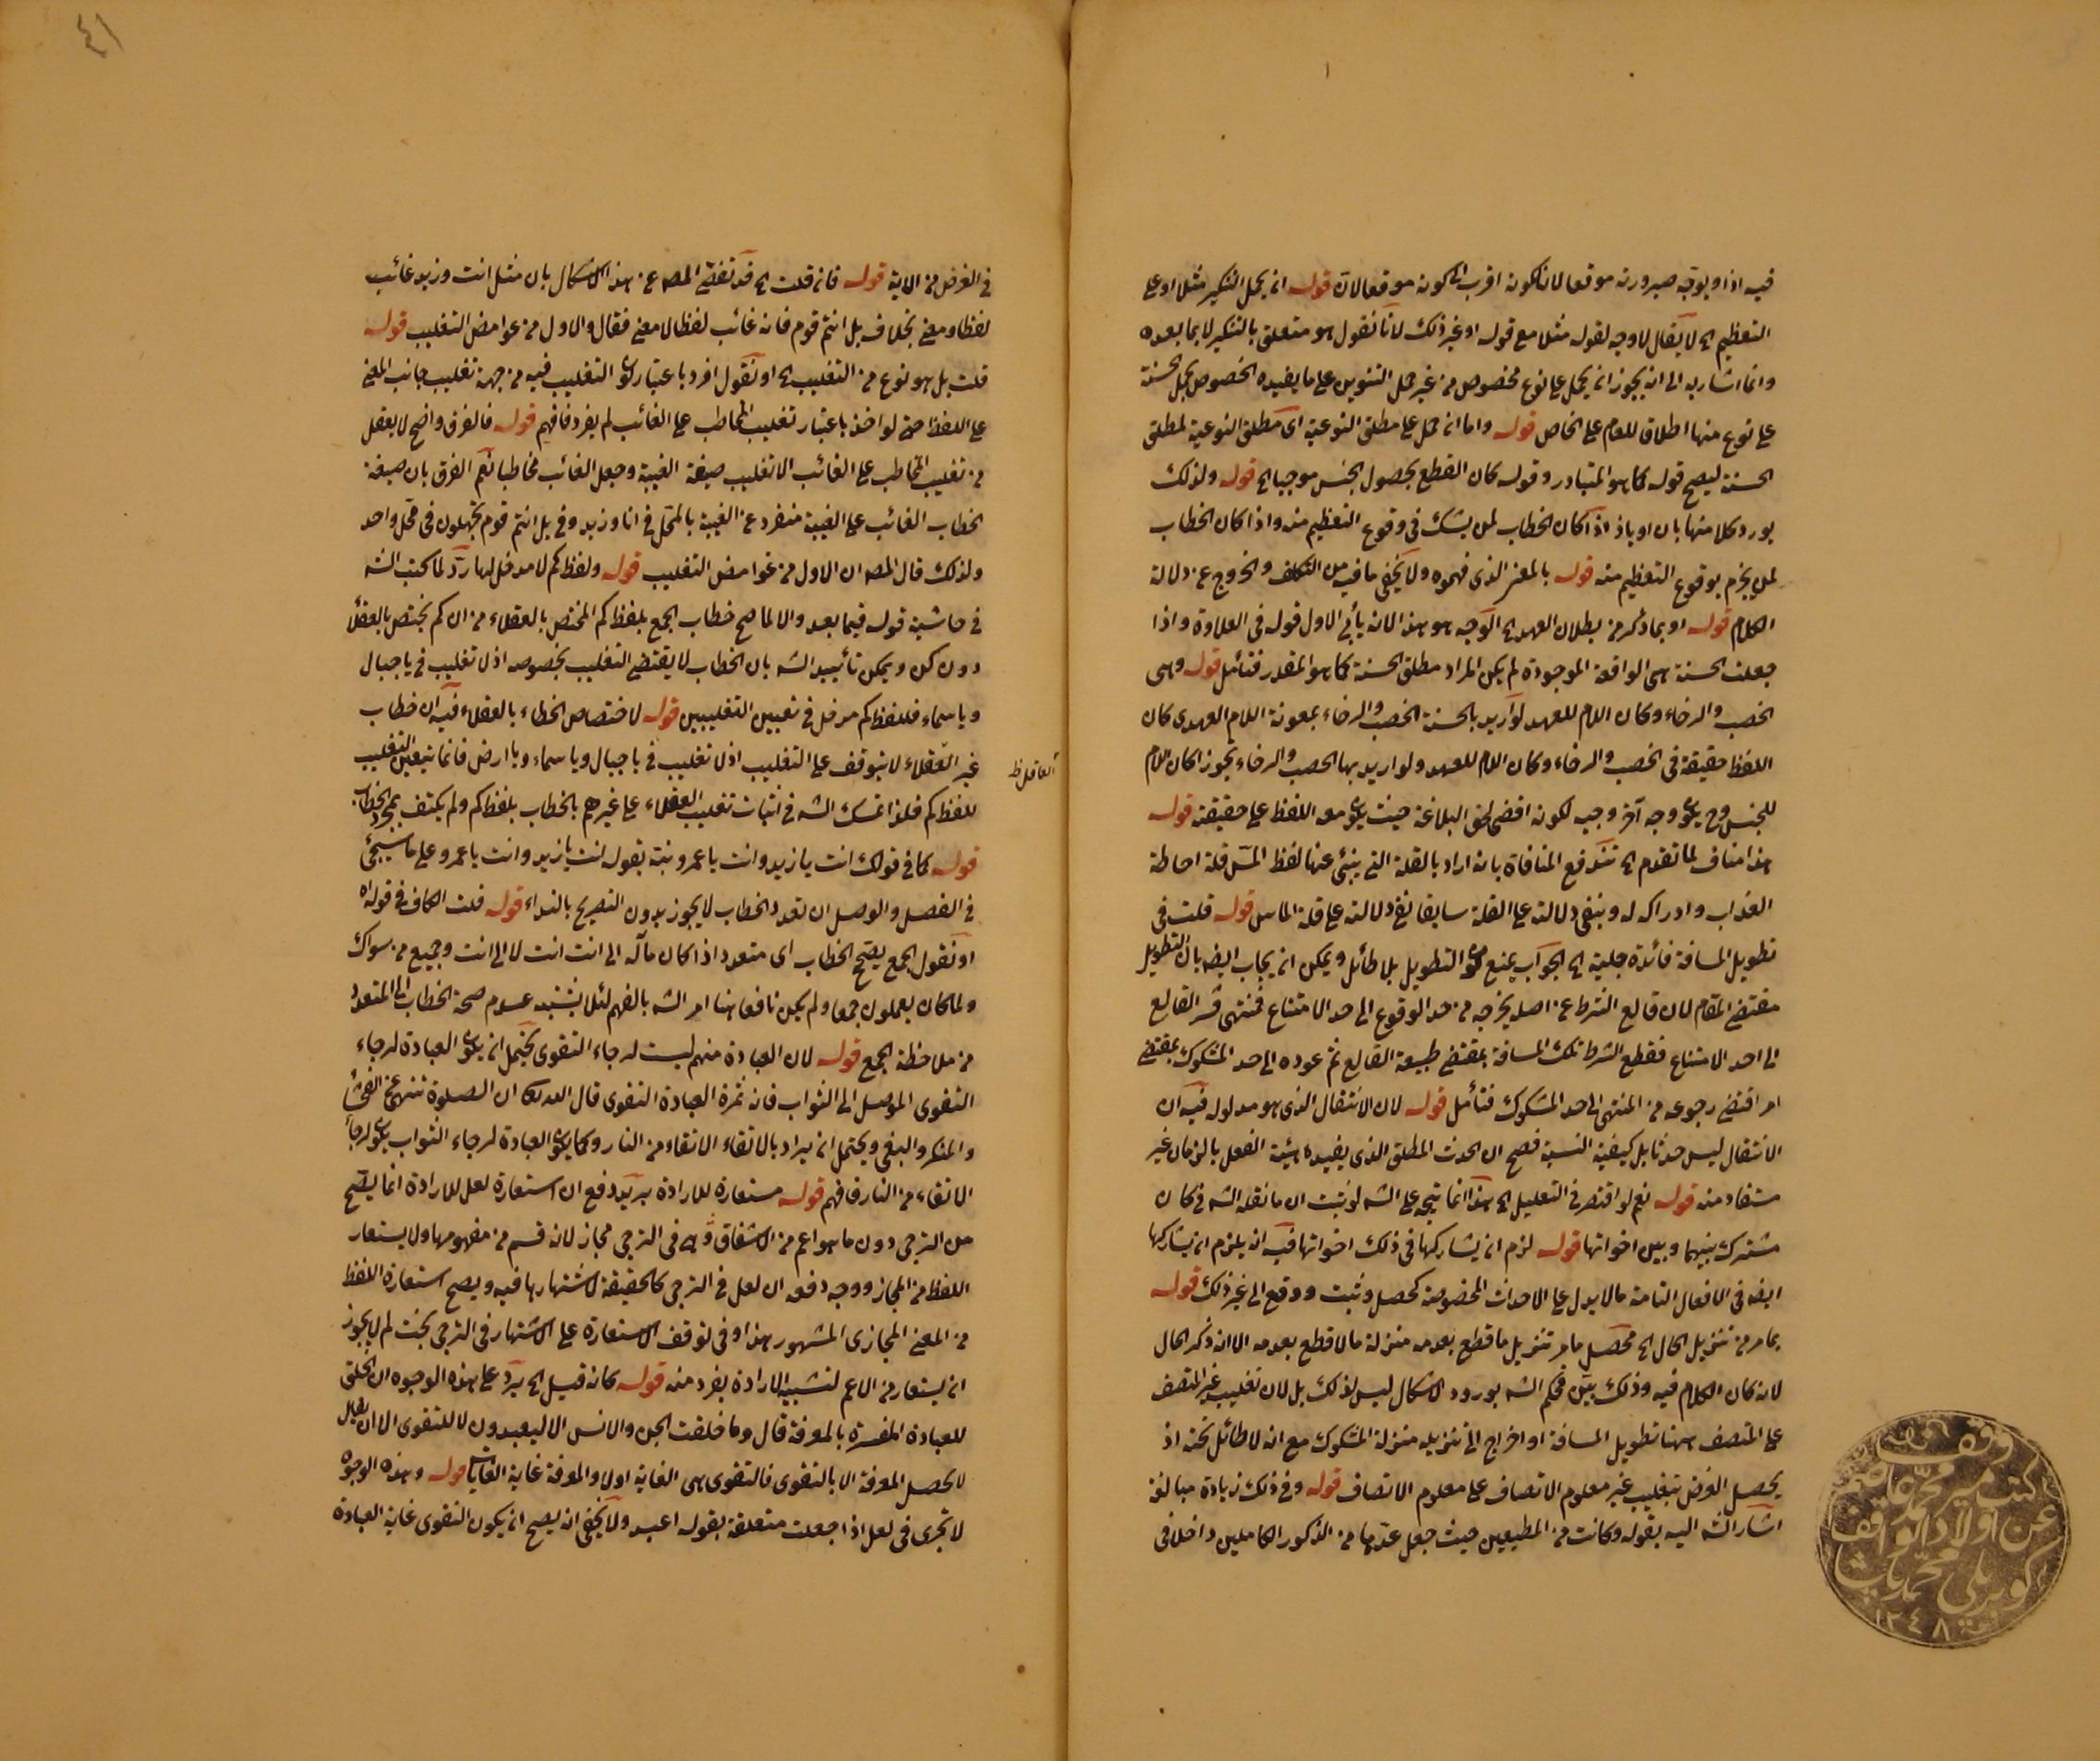 فيه اذ او يوقبه صيرورته موقعا لان كونه اقرب الى كونه موقعا لان قوله انه يحمل التنكير مثلا او على
التعظيم اه لا يقال لا وجه لقوله مثلا مع قوله او غير ذلك لانا نقول هو متعلق بالتنكير لا بما بعده
وانما اشار به الى انه يجوز ان يحمل على نوع مخصوص من غير حمل التنوين على ما يفيده الخصوص بحمل الحسنة
على نوع منها اطلاق للعام على الخاص قوله واما ان حمل على مطلق النوعية اى مطلق النوعية لمطلق
الحسنة ليصح قوله كما هو المتبادر وقوله كان القطع بحصول الجنس موجبا اه قوله ولذلك
يورد كلا منهما بان او باذ اذا كان الخطاب لمن يشك فى وقوع التعظيم منه واذا كان الخطاب
لمن يجزم بوقوع التعظيم منه قوله بالمعنى الذى فهموه ولا يخفى ما فيه من التكلف والخروج عن دلالة
الكلام قوله او بما ذكر من بطلان العهد اه الوجه هو هذا لانه يأبى الاول قوله فى العلاوة واذا
جعلت الحسنة هى الواقعة الموجودة لم يكن المراد مطلق الحسنة كما هو المقدر فتأمل قوله وهى
الخصب والرخاء وكان اللام للعهد لو اريد بالحسنة الخصب والرخاء بمعونة اللام العهدى كان
اللفظ حقيقة فى الخصب والرخاء وكان اللام للعهد ولو اريد بها الخصب والرخاء تجوزا كان اللام
للجنس وح يكون وجه آخر وجيه لكونه اقضى لحق البلاغة حيث يكون معه اللفظ على حقيقته قوله
هذا مناف لما تقدم اه تندفع المنافاة بانه اراد بالقلة التى ينبئ عنها لفظ المس قلة احاطة
العذاب وادراكه له وبنفى دلالته على القلة سابقا نفى دلالته على قلة الماس قوله قلت فى
تطويل المسافة فائدة جلية اه الجواب يمنع كون التطويل بلا طائل ويمكن ان يجاب ايضه بان التطويل
مقتضى المقام لان قالع الشرط عن اصله يخرجه من حد الوقوع الى حد الامتناع فمنتهى قسر القالع
الى احد الامتناع فقطع الشرط تلك المسافة بمقتضى طبيعة القالع ثم عوده الى حد المشكوك بمقتضى
امر اقتضى رجوعه من المنتهى الى حد المشكوك فتأمل قوله لان الانتقال الذى هو مدلوله فيه ان
الانتقال ليس حدثا بل كيفية النسبة فصح ان الحدث المطلق الذى يفيده هيئة الفعل بالزمان غير
مستفاد منه قوله نعم لو اقتصر فى التعليل اه هذا انما يتجه على الشه لو ثبت ان ما نقله الشه فى كان
مشترك بينهما وبين اخواتها قوله لزم ان يشاركها فى ذلك اخواتها فيه انه يلزم ان يشاركها
ايضه فى الافعال التامة مالا يدل على الاحداث المخصوصة كحصل وثبت ووقع الى غير ذلك قوله
بما مر من تنزيل الحال اه محصل ما مر تنزيل ما قطع بعدمه منزلة مالا قطع بعدمه الا انه ذكر الحال
لانه كان الكلام فيه وذلك بين فحكم الشه بورود الاشكال ليس لذلك بل لان تغليب غير المتصف
على المتصف ههنا تطويل المسافة او اخراج الى تنزيله منزلة المشكوك مع انه لا طائل تحته اذ
يحصل الغرض بتغليب غير معلوم الاتصاف على معلوم الاتصاف قوله وفى ذلك زيادة مبالغة
اشار الشه اليه بقوله وكانت من المطيعين حيث جعل عدها من الذكور الكاملين داخلا فى
وقف
كتب مير محمد عاصم
عن اولاد الواقف
كوپريلى محمد پاشا
١٢٤٨
٤١
فى الغرض من الاية قوله فان قلت اه قد تفصى المصه عن هذا الاشكال بان مثل انت وزيد غائب
لفظا ومعنى بخلاف بل انتم قوم فانه غائب لفظا لا معنى فقال والاول من غوامض التغليب قوله
قلت بل هو نوع من التغليب اه او نقول افرد باعتبار كون التغليب فيه من جهة تغليب جانب المعنى
على اللفظ حتى لو اخذ باعتبار تغليب المخاطب على الغائب لم يفرد فافهم قوله فالفرق واضح لا يعقل
من تغليب المخاطب على الغائب الا تغليب صيغة الغيبة وجعل الغائب مخاطبا نعم الفرق بان صيغة
الخطاب الغائب على الغيبة منفرد عن الغيبة بالمحل فى انا وزيد وفى بل انتم قوم تجهلون فى محل واحد
ولذلك قال المصه ان الاول من غوامض التغليب قوله ولفظ كم لا مدخل لها رد لما كتب الشه
فى حاشية قوله فيما بعد والا لما صح خطاب الجمع بلفظ كم المختص بالعقلاء من ان كم يختص بالعقلاء
دون كن ويمكن تأييد الشه بان الخطاب لا يقتضى التغليب بخصوصه اذ لا تغليب فى يا جبال
ويا سماء فللفظ كم مدخل فى تعيين التغليبين قوله لاختصاص الخطاء بالعقلاء فيه ان خطاب
غير العقلاء لا يتوقف على التغليب اذ لا تغليب فى يا جبال ويا سماء ويا ارض فانما يتعين التغليب
العاقل ظ
للفظ كم فلذا تمسك الشه فى اثبات تغليب العقلاء على غيرهم بالخطاب بلفظ كم ولم يكتف بمجرد الخطاب
قوله كما فى قولك انت يا زيد وانت يا عمرو نبه بقوله انت يا زيد وانت يا عمرو على ما سيجئ
فى الفصل والوصل ان تعدد الخطاب لا يجوز بدون التصريح بالنداء قوله قلت الكاف فى قوله اه
او نقول الجمع يصح الخطاب اى متعدد اذا كان مآله الى انت انت لا الى انت وجميع من سواك
ولما كان يعملون جمعا ولم يكن نافعا هنا امر الشه بالفهم لئلا يشتبه عدم صحة الخطاب الى المتعدد
من ملاحظة الجمع قوله لان العبادة منهم ليست لرجاء التقوى يحتمل ان يكون العبادة لرجاء
التقوى الموصل الى الثواب فان ثمرة العبادة التقوى قال الله تعالى ان الصلوة تنهى عن الفحشاء
والمنكر والبغى ويحتمل ان يراد بالاتقاء الاتقاء من النار وكما يكون العبادة لرجاء الثواب يكون لرجاء
الاتقاء من النار فافهم قوله مستعارة للارادة يريد دفع ان استعارة لعل للارادة انما يصح
من الترجى دون ما هو اعم من الاشفاق وهى فى الترجى مجاز لانه قسم من مفهومها ولا يستعار
اللفظ من المجاز ووجه دفعه ان لعل فى الترجى كالحقيقة لاشتهارها فيه ويصح استعارة اللفظ
من المعنى المجازى المشهور هذا وفى توقف الاستعارة على الاشتهار فى الترجى بحث لم لا يجوز
ان يستعار من الاعم لتشبيه الارادة بفرد منه قوله كانه قيل اه يرد على هذه الوجوه ان الخلق
للعبادة المفسرة بالمعرفة قال وما خلقت الجن والانس الا ليعبدون لا للتقوى الا ان يقال
لا تحصل المعرفة الا بالتقوى فالتقوى هى الغاية اولا والمعرفة غاية الغايات قوله وهذه الوجوه
لا تجرى فى لعل اذا جعلت متعلقة بقوله اعبد ولا يخفى انه يصح ان يكون التقوى غاية العبادة